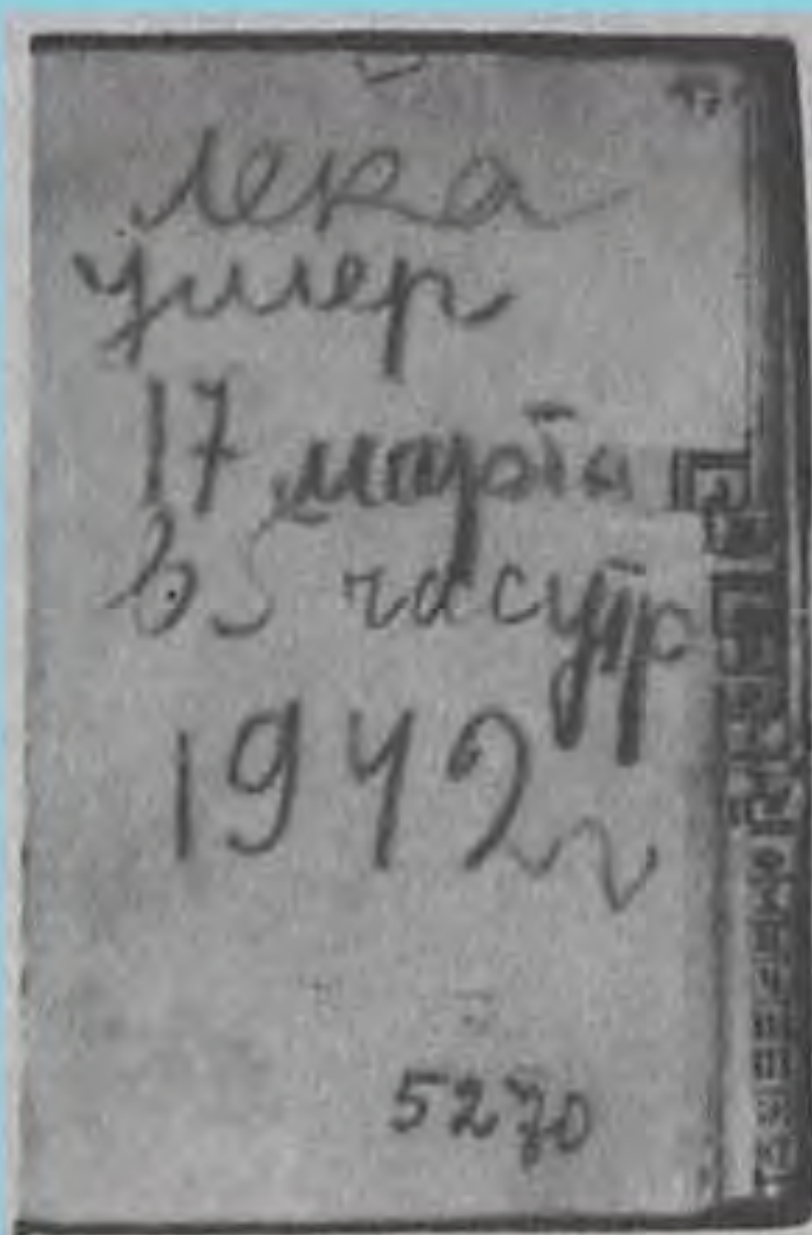 Лека
умер
17 марта
в 5 часутр
1942 г
5270